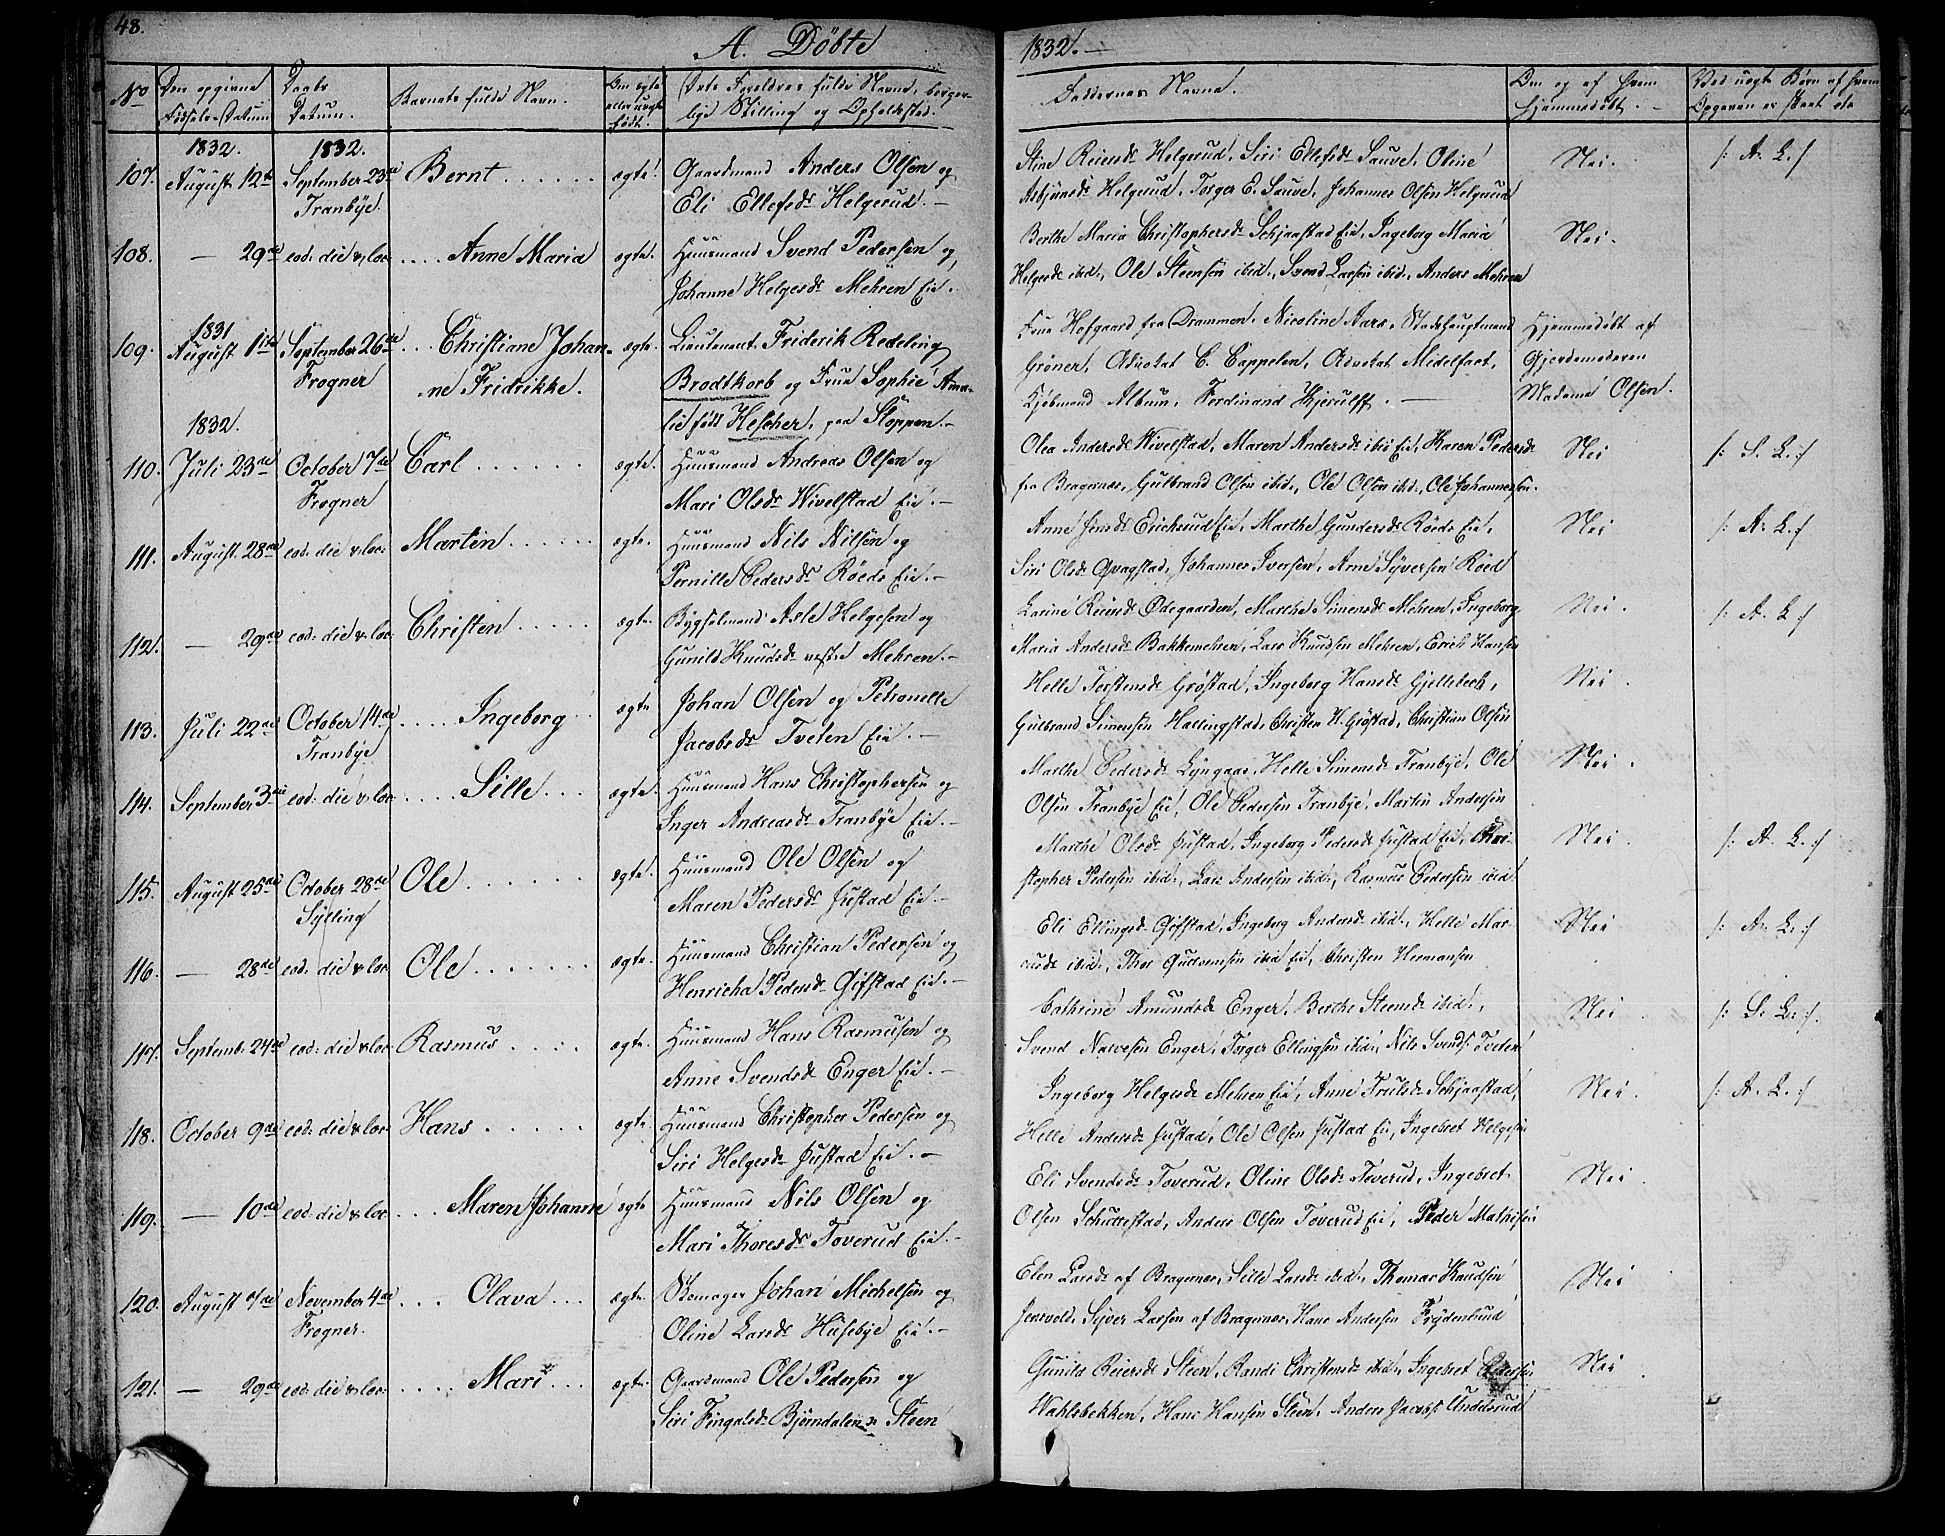 48.
A. Döbte
1832.
No
Den opgivne Födsels-Datum
Daabs Datum.
Barnets fulde Navn.
Om ægte eller uægte födt.
Dets Forældres fulde Navne, borger-
lige Stilling og Opholdssted.
Faddernes Navne.
Om og af hvem hjemmedöbt.
Ved uægte Börn af hvem Opgaven er skeet etc
107. 1832. August 12te 1832. September 23de Tranbye. Bernt ægte. Gaardmand Anders Olsen og
Eli Ellefsdr Helgerud.
Stine Reiersdr Helgerud, Siri Ellefsdr Sauve, Oline Nei. /: A. L. :/
Asbjönsdr Helgerud, Torger E. Sauve, Johannes Olsen Helgerud
108. — 29de eod: die & loc: Anne Maria ægte. Huusmand Svend Pedersen og
Johanne Helgesdr Mehren Eie.
Berthe Maria Christophersdr Schjaastad Eie, Ingeborg Maria Nei.
Helgesdr ibid., Ole Steensen ibid., Svend Larsen ibid., Anders Mehren
109. 1831 August 1ste September 26de Frogner Christiane Johan-
ne Fridrikke. ægte. Lieutenant Friderik Redeling
Brodtkorb og Frue Sophie Ama-
lie födt Hescher, paa Stoppen.
Frue Hofgaard fra Drammen, Nicoline Aars, Stadshauptmand Hjemmedöbt af
Gröner, Advokat C. Cappelen, Advokat Midelfart, Gjordemoderen
Kjöbmand Album, Ferdinand Kjerulff. Madame Olsen.
110. 1832. Juli 23de October 7de Frogner Carl ægte. Huusmand Andreas Olsen og
Mari Olsdr Wivelstad Eie.
Olea Andersdr Wivelstad, Maren Andersdr ibid Eie, Karen Pedersdr Nei /: S. L. :/
fra Bragernes, Gulbrand Olsen ibid., Ole Olsen ibid., Ole Johannessen.
111. August 28de eod: die & loc: Martin ægte. Huusmand Nils Nilsen og
Pernille Pedersdr Röeds Eie.
Anne Jensdr Erichsrud Eie, Marthe Gundersdr Röeds Eie, Nei /: A. L. :/
Siri Olsdr Qvagstad, Johannes Iversen, Arne Syversen Röed
112. — 29de eod: die & loc: Christen ægte. Bygselmand Asle Helgesen og
Gunild Knudsdr vestre Mehren.
Larine Reiersdr Ödegaarden, Marthe Simensdr Mehren, Ingeborg Nei. /: A. L. :/
Maria Andersdr Bakkemehren, Lars Knudsen Mehren, Erich Hansen
113. Juli 22de October 14de Tranbye Ingeborg ægte Johan Olsen og Petronelle
Jacobsdr Tveten Eie.
Helle Torstensdr Gröstad, Ingeborg Hansdr Gjellebeck, Nei.
Gulbrand Simensen Hallingstad, Christen H. Gröstad, Christian Olsen
114. September 3die eod: die & loc: Sille ægte. Huusmand Hans Christophersen og
Inger Andreasdr Tranbye Eie.
Marthe Pedersdr Lyngaas, Helle Simensdr Tranbye, Ole Nei.
Olsen Tranbye Eie, Ole Pedersen Tranbye, Martin Andersen
115. August 25de October 28de Sylling Ole ægte. Huusmand Ole Olsen og
Maren Pedersdr Justad Eie.
Marthe Olsdr Justad, Ingeborg Pedersdr Justad Eie, Chri- Nei. /: A. L. :/
stopher Pedersen ibid., Lars Andersen ibid., Rasmus Pedersen ibid
116. — 28de eod: die & loc: Ole ægte. Huusmand Christian Pedersen og
Henricha Pedersdr Gifstad Eie.
Eli Ellingsdr Gifstad, Ingeborg Andersdr ibid., Helle Mar- Nei /: A. L. :/
ibid., Thor ibid Eie, Christen Hermansen
117. Septemb. 24de eod: die & loc: Rasmus ægte. Huusmand Hans Rasmusen og
Anne Svendsdr Enger Eie.
Cathrine Amundsdr Enger, Berthe Steensdr ibid., Nei. /: S. L. :/
Svend Narvesen Enger, Torger Ellingsen ibid., Nils Svends. Tveten
118. October 9de eod: die & loc: Hans ægte Huusmand Christopher Pedersen og
Siri Helgesdr Justad Eie.
Ingeborg Helgesdr Mehren Eie, Anne Trulsdr Schjaastad, Nei. /: A. L. :/
Helle Andersdr Justad, Ole Olsen Justad Eie, Ingebret Helgesen
119. — 10de eod: die & loc: Maren Johanne ægte Huusmand Nils Olsen og
Mari Thoresdr Toverud Eie.
Eli Svendsdr Toverud, Oline Olsdr Toverud, Ingebret Nei.
Olsen Schuttestad, Anders Olsen Toverud Eie, Peder Mathisen
120. August 7de November 4de Frogner. Olava ægte. Skomager Johan Michelsen og
Oline Larsdr Husebye Eie.
Elen Larsdr af Bragernes, Sille Larsdr ibid., Thomas Knudsen Nei
Jensvold, Syver Larsen af Bragernes, Hans Andersen Frydenlund
121. — 29de eod: die & loc: Mari ægte. Gaardmand Ole Pedersen og
Siri Fingalsdr Björndalen Steen
Gunild Reiersdr Steen, Randi Christensdr ibid., Ingebret Pedersen Nei
Wahlsbekken, Hans Hansen Steen, Anders Jacobs. Underrud